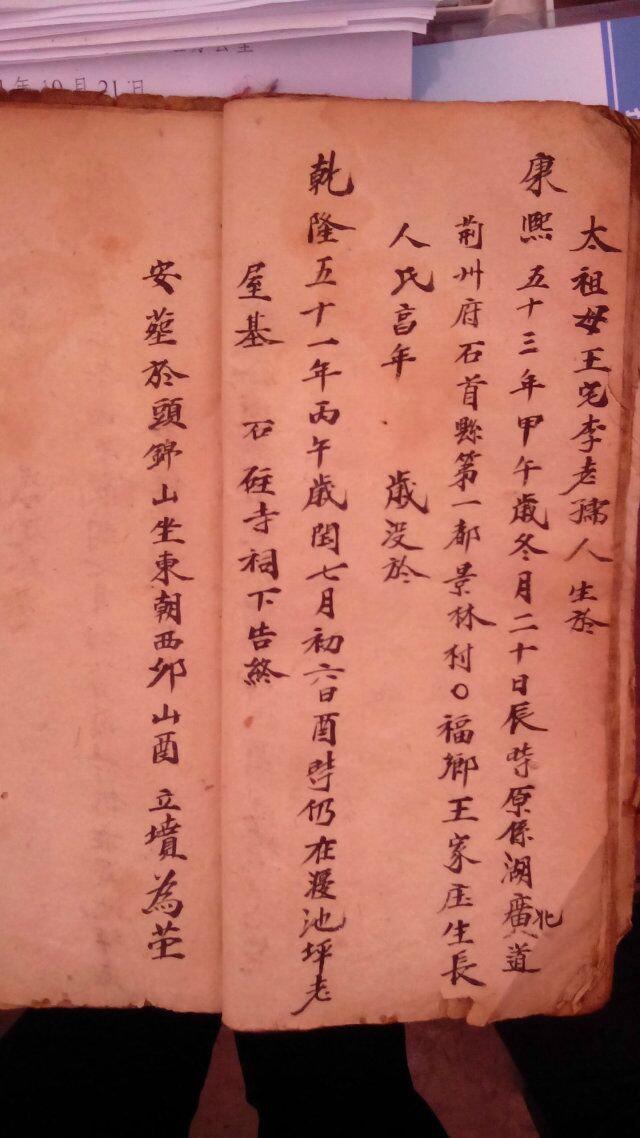 年10月21日
太祖母王宅李老孺人生於
康熙五十三年甲午歲冬月二十日辰時原係湖廣北道
荊州府石首縣第一都景林村〇福鄉王家庄生長
人氏高年 歲没於
乾隆五十一年丙午歲閏七月初六日酉時仍在 池坪老
屋基 石砫寺祠下告終
安塟於頭錦山坐東朝西卯山酉 立墳為茔